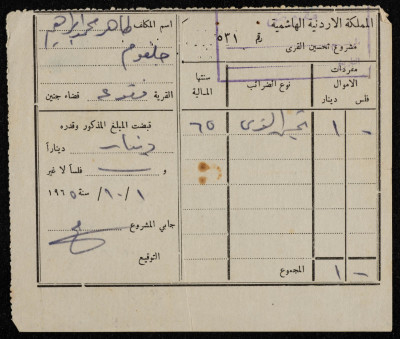 المملكة الاردنية الهاشمية
رقم ٥٣١
مشروع تحسين القرى
مفردات الاموال
فلس دينار
نوع الضرائب
سنتها المالية
- ١
تحسين القرى
٦٥
المجموع
- ١
اسم المكلف طاهر محمد ابراهيم
جلغوم
القرية فقوعه قضاء جنين
قبضت المبلغ المذكور وقدره
دينار دينارا
و - فلسا لا غير
١ / ١٠ / سنة ١٩٦٥
جابي المشروع
التوقيع